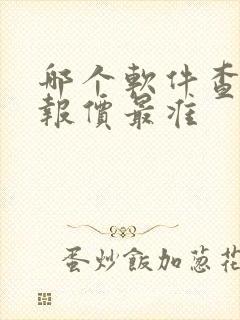 哪个軟件查
報價最准
蛋炒飯加葱花